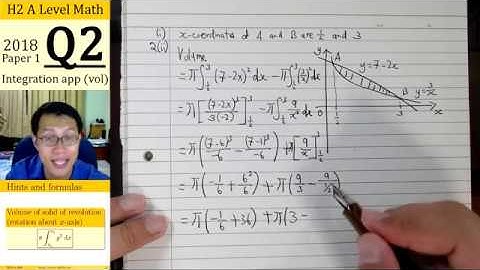 H2 A Level Math
2018
Paper 1
Q2
Integration app (vol)
Hints and formulas
Volume of solid of revolution
(rotation about x-axis)
π∫ y² dx
i) x-coordinates of A and B are ½ and 3
2(ii)
Volume
= π∫_{½}^{3} (7-2x)² dx - π∫_{½}^{3} (3/x)² dx
= π[(7-2x)³/3(-2)]_{½}^{3} - π∫_{½}^{3} 9/x² dx
= π((7-6)³/-6 - (7-1)³/-6) + π[9/x]_{½}^{3}
= π(-1/6 + 6³/6) + π(9/3 - 9/½)
= π(-1/6 + 36) + π(3 -
y
A
y=7-2x
y=3/x
B
0
½
3
x